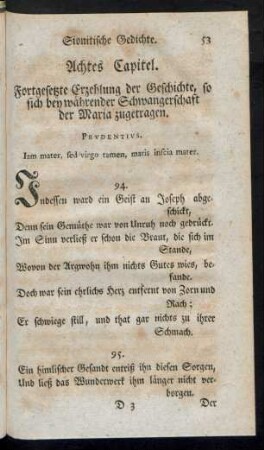 Sionitische Gedichte. 53
Achtes Capitel.
Fortgesetzte Erzehlung der Geschichte, so
sich bey währender Schwangerschaft
der Maria zugetragen.
PRVDENTIVS.
Iam mater, sed virgo tamen, maris inscia mater.
94.
Indessen ward ein Geist an Joseph abge-
schickt,
Denn sein Gemüthe war von Unruh noch gedrückt.
Im Sinn verließ er schon die Braut, die sich im
Stande,
Wovon der Argwohn ihm nichts Gutes wies, be-
fande.
Doch war sein ehrlichs Herz entfernt von Zorn und
Rach;
Er schwiege still, und that gar nichts zu ihrer
Schmach.
95.
Ein himlischer Gesandt entriß ihn diesen Sorgen,
Und ließ das Wunderwerk ihm länger nicht ver-
borgen.
D 3 Der